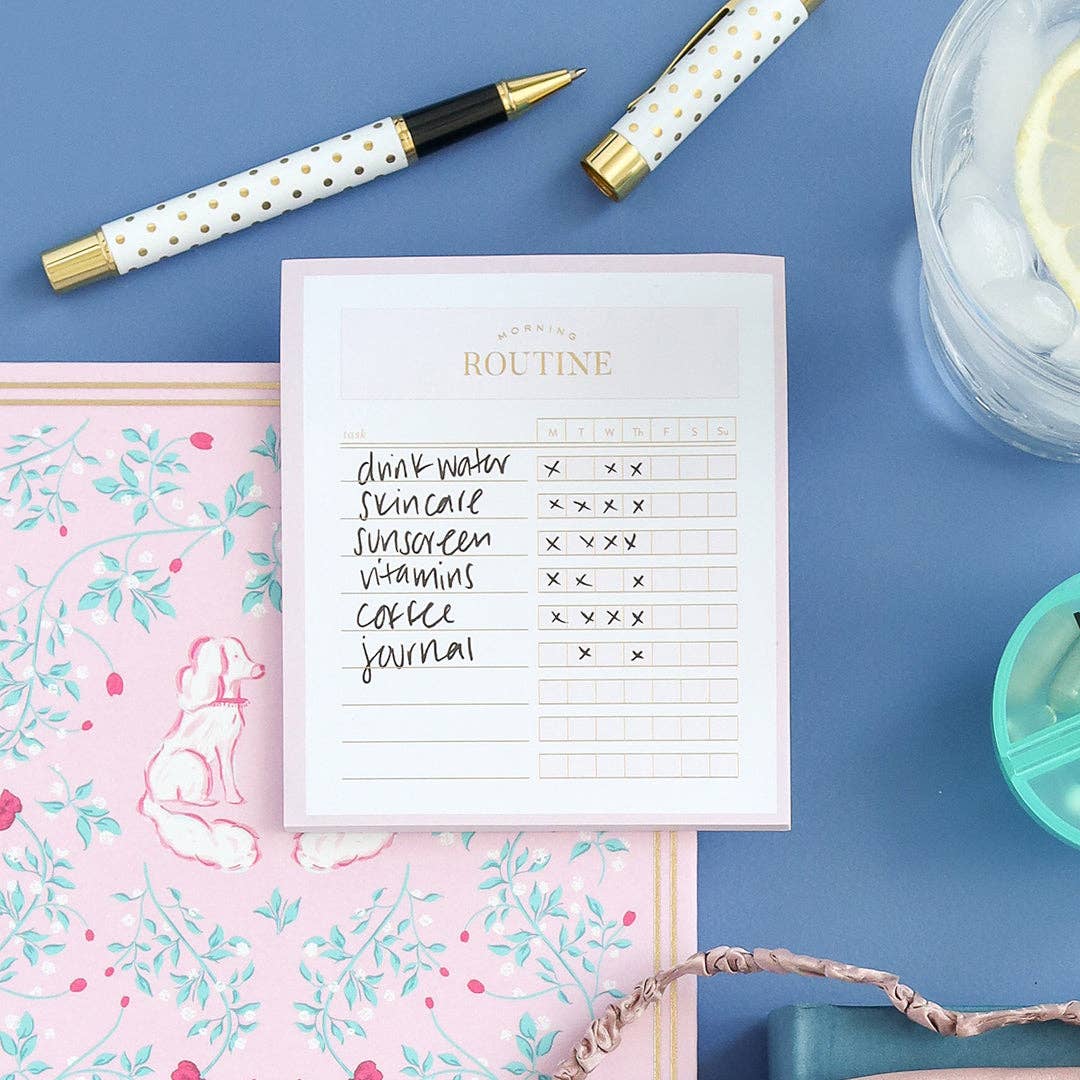 MORNING
ROUTINE
task M T W Th F S Su
drink water x x x
skincare x x x x
sunscreen x x x x
vitamins x x x
coffee x x x x
journal x x